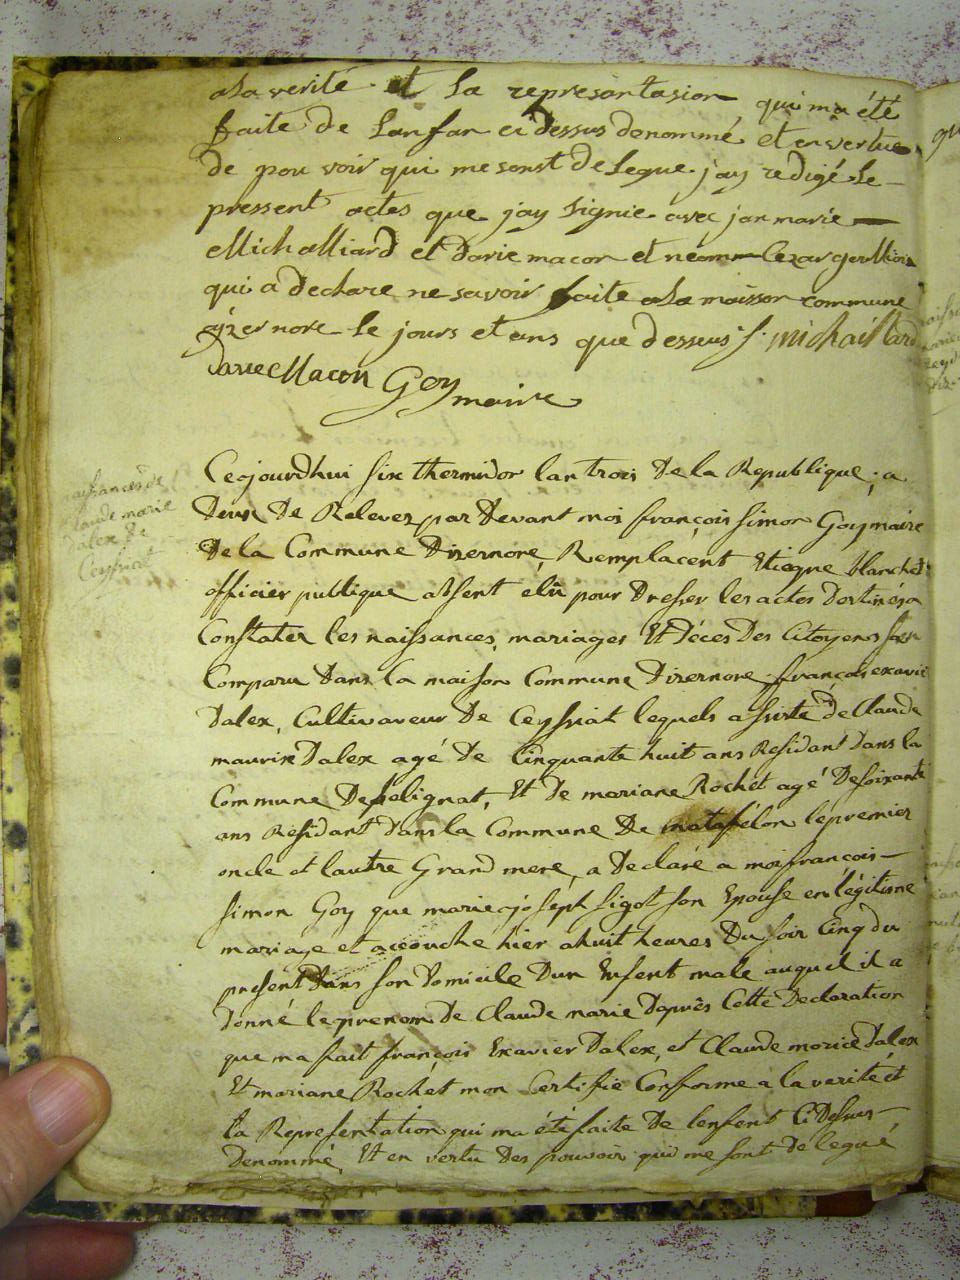 ala verité et la represantasion qui ma été
faite de lanfan ci dessus denommé et en vertue
de pou voir qui me sonst delegue jay redigé le
pressent actes que jay signie avec jan marie
Michalliard et darie macon et Cezar goullion
qui a declare ne savoir faite ala maisson commune
dizernore le jours et ans que dessus f. michaillard
darie Macon Goy maire
Cejourdhui six thermidor lan trois De la Republique, a
Deux De Relevez par Devant moi françois simon Goy maire
De la Commune Dizernore, Remplacent Etiegne blanchet
officier publique absent elû pour Dresser les actes Destinés a
Constater les naissances, mariages Et Déces Des Citoyens
Comparu Dans la maison Commune Dizernore, françois exavie
Dalex, Cultivaveur De Ceyssiat lequels assisté de Claude
maurixe Dalex agé De Cinquante huit ans Residant Dans la
Commune De solignat, Et De mariane Rochet agé De soixante
ans Residant Dans la Commune De matafélon le premier
oncle et lautre Grand mere, a Declaré a moi francois
simon Goy que marie josept sigot son Epouse en légitisme
mariage et accouche hier a huit heures Du soir Cinq du
present Dans son Domicile Dun Enfent male auquel il a
Donné le prenom De Claude marie Daprês Cette Declaration
que ma fait françois Exavier Dalex, et Claude morice Dalex
Et mariane Rochet mon Certifié Conforme a la verité et
la Representation qui ma été faite De lenfent Ci Dessus
Denommé, Et en vertu Des pouvoir qui me sont De legué
naissances de
Claude marie
Dalex De
Ceyssiat